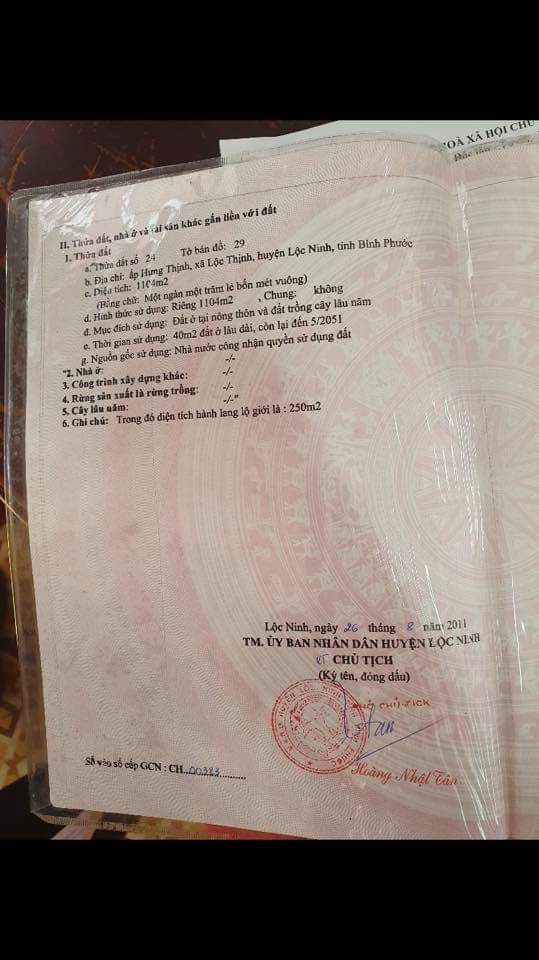 OÀ XÃ HỘI CHỦ
Độc lập
II. Thửa đất, nhà ở và tài sản khác gắn liền với đất
1. Thửa đất
a. Thửa đất số 24 Tờ bản đồ: 29
b. Địa chỉ: ấp Hưng Thịnh, xã Lộc Thịnh, huyện Lộc Ninh, tỉnh Bình Phước
c. Diện tích: 1104m2
(Bằng chữ: Một ngàn một trăm lẻ bốn mét vuông)
d. Hình thức sử dụng: Riêng 1104m2 , Chung: không
đ. Mục đích sử dụng: Đất ở tại nông thôn và đất trồng cây lâu năm
e. Thời gian sử dụng: 40m2 đất ở lâu dài, còn lại đến 5/2051
g. Nguồn gốc sử dụng: Nhà nước công nhận quyền sử dụng đất
"2. Nhà ở: -/-
3. Công trình xây dựng khác: -/-
4. Rừng sản xuất là rừng trồng: -/-
5. Cây lâu năm: -/-"
6. Ghi chú: Trong đó diện tích hành lang lộ giới là : 250m2
Lộc Ninh, ngày 26 tháng 8 năm 2011
TM. ỦY BAN NHÂN DÂN HUYỆN LỘC NINH
KT CHỦ TỊCH
(Ký tên, đóng dấu)
PHÓ CHỦ TỊCH
Hoàng Nhật Tân
Số vào sổ cấp GCN : CH...00383..........